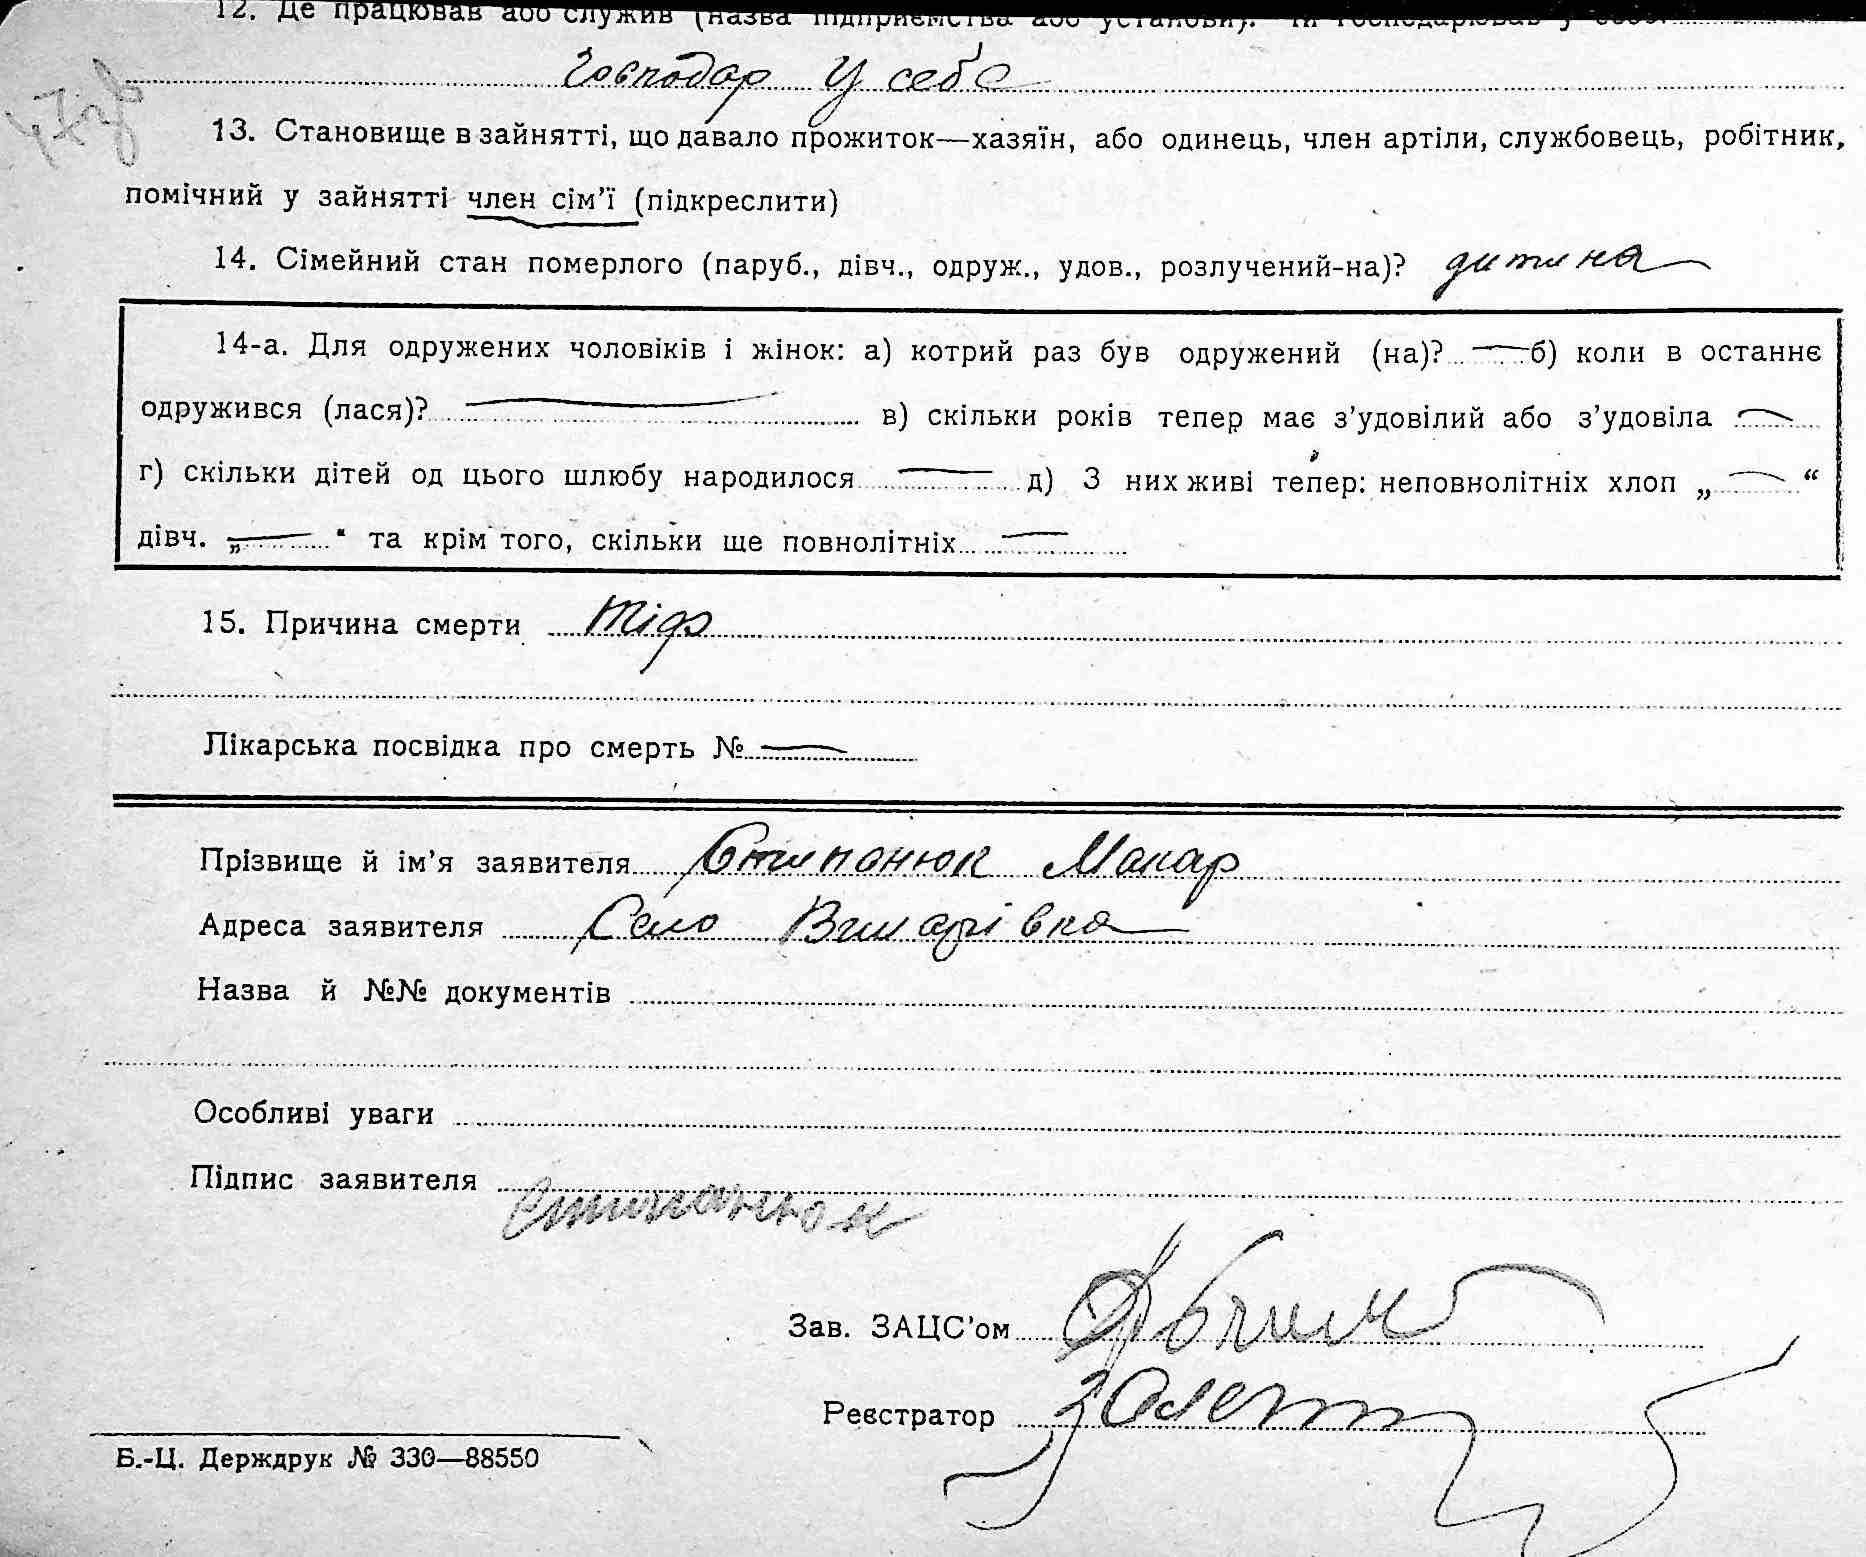 12. Де працював або служив (назва підприємства або установи). Чи господарював у себе.
Господар у себе
13. Становище в зайнятті, що давало прожиток—хазяїн, або одинець, член артіли, службовець, робітник,
помічний у зайнятті член сім’ї (підкреслити)
14. Сімейний стан померлого (паруб., дівч., одруж., удов., розлучений-на)? дитина
14-а. Для одружених чоловіків і жінок: а) котрий раз був одружений (на)? — б) коли в останнє
одружився (лася)? — в) скільки років тепер має з’удовілий або з’удовіла —
г) скільки дітей од цього шлюбу народилося — д) З них живі тепер: неповнолітніх хлоп „ — “
дівч. „ — “ та крім того, скільки ще повнолітніх —
15. Причина смерти тіф
Лікарська посвідка про смерть № —
Прізвище й ім’я заявителя Стипонюк Макар
Адреса заявителя Село
Назва й №№ документів
Особливі уваги
Підпис заявителя Стипанюк
Зав. ЗАЦС’ом
Реєстратор
Б.-Ц. Держдрук № 330—88550